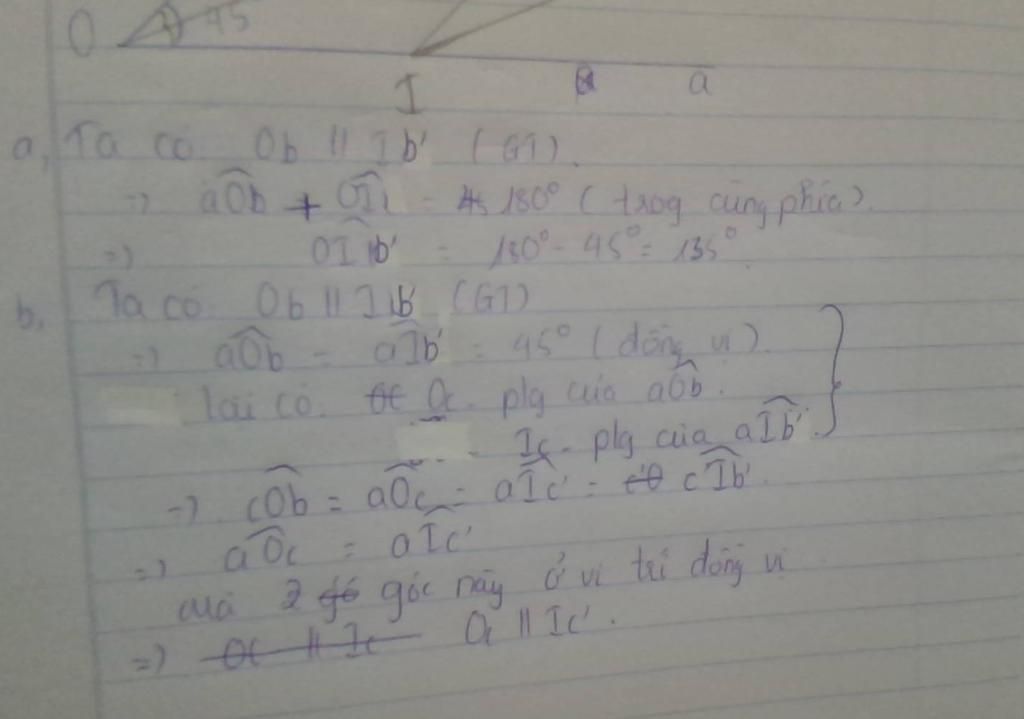 O 45
I a
a, Ta có Ob // Ib' (GT).
=> aOb + OI = 180° (trog cùng phía).
=> OIb' = 180° - 45° = 135°
b, Ta có Ob // Ib' (GT)
=> aOb = aIb' = 45° (đồng vị).
lại có. Oc - plg của aOb.
Ic - plg của aIb'.
=> cOb = aOc = aIc' = cIb'
=> aOc = aIc'
mà 2 góc này ở vị trí đồng vị
=> Oc // Ic Oc // Ic'.